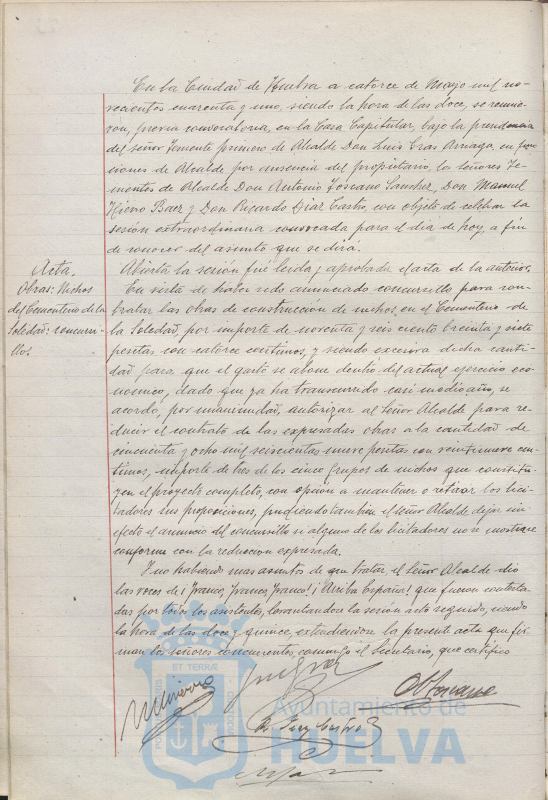 En la Ciudad de Huelva a catorce de Mayo mil no-
vecientos cuarenta y uno, siendo la hora de las doce, se reunie-
ron, previa convocatoria, en la Casa Capitular, bajo la presidencia
del señor Teniente primero de Alcalde Don Luis Arriaga, en fun-
ciones de Alcalde por ausencia del propietario, los señores Te-
nientes de Alcalde Don Antonio Toscano Sánchez, Don Manuel
Hierro Baez y Don Ricardo Díaz Castro, con objeto de celebrar la
sesión extraordinaria convocada para el día de hoy, a fin
de conocer del asunto que se dirá.
Acta.
Abierta la sesión fué leída y aprobada el acta de la anterior.
Obras: Nichos
del Cementerio de la
Soledad: concursi-
llos.
En vista de haber sido anunciado concursillo para con-
tratar las obras de construcción de nichos, en el Cementerio de
la Soledad, por importe de noventa y seis ciento treinta y siete
pesetas con catorce centimos, y siendo excesiva dicha canti-
dad para que el gasto se abone dentro del actual ejercicio eco-
nomico, dado que ya ha transcurrido casi medio año, se
acordó, por unanimidad, autorizar al Señor Alcalde para re-
ducir el contrato de las expresadas obras a la cantidad de
cincuenta y ocho mil seiscientas nueve pesetas con veintinueve cen-
timos, importe de tres de los cinco grupos de nichos que constitu-
yen el proyecto completo, con opción a mantener o retirar los lici-
tadores sus proposiciones, pudiendo tambien el señor Alcalde dejar sin
efecto el anuncio del concursillo si alguno de los licitadores no se mostrase
conforme con la reducción expresada.
Y no habiendo mas asuntos de que tratar, el Señor Alcalde dió
las voces de ¡Franco, Franco, Franco! ¡Arriba España! que fueron contesta-
das por todos los asistentes, levantandose la sesión acto seguido, siendo
la hora de las doce y quince, extendiendose la presente acta que fir-
man los señores concurrentes conmigo el Secretario, que certifico
R. Diaz Castro
Toscano
PORTUS
ET TERRAE
CUSTODIA
Ayuntamiento de
HUELVA